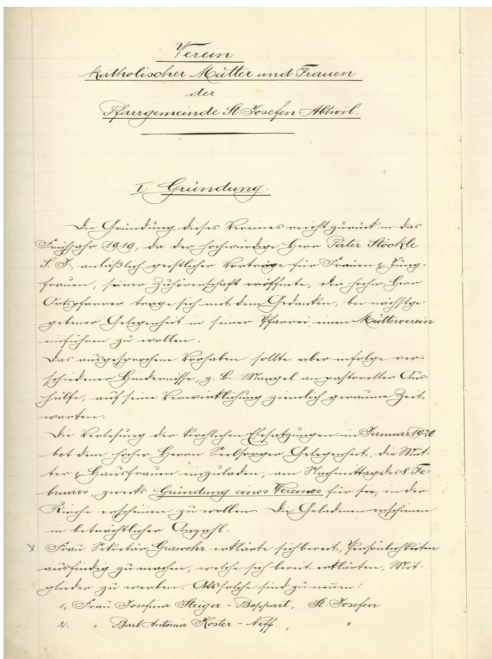 Verein
Katholischer Mütter und Frauen
der
Pfarrgemeinde St. Josefen Abtwil.
I. Gründung.
Die Gründung dieses Vereines reicht zurück in das
Frühjahr 1919, da der hochwürdige Herr Pater Stöckle
S. J., anläßlich geistlicher Vorträge für Frauen & Jung-
frauen, seiner Zuhörerschaft eröffnete, der hochw. Herr
Ortspfarrer trage sich mit dem Gedanken, bei nächstge-
gebener Gelegenheit in seiner Pfarrei einen Mütterverein
einführen zu wollen.
Das ausgesprochene Vorhaben sollte aber infolge ver-
schiedener Hindernisse, z. B. Mangel an pastoreller Aus-
hülfe, auf seine Verwirklichung ziemlich geraume Zeit
warten.
Die Verlesung der kirchlichen Ehesatzungen im Januar 1920
bot dem hochw. Herrn Seelsorger Gelegenheit, die Müt-
ter & Hausfrauen einzuladen, am Nachmittag des 8. Fe-
bruars, zwecks Gründung eines Vereines für sie, in der
Kirche erscheinen zu wollen. Die Geladenen erschienen
in beträchtlicher Anzahl.
x Frau Sekretär erklärte sich bereit, Persönlichkeiten
ausfindig zu machen, welche sich bereit erklärten, Mit-
glieder zu werben. Als solche sind zu nennen:
1, Frau Josefina Steiger - Boppart, St. Josefen
2, " Barb. Antonia Koster - Neff, "